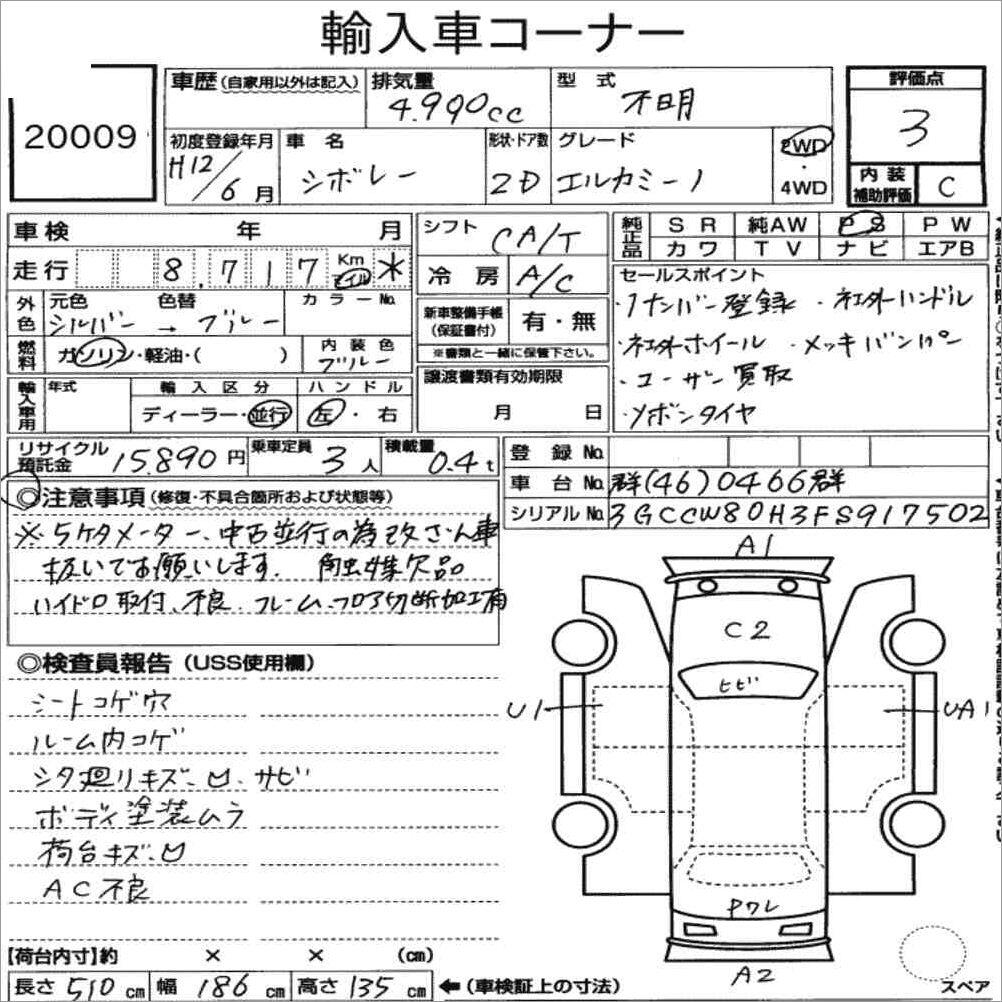 輸入車コーナー
20009
車歴 (自家用以外は記入)
排気量
4.990cc
型式
不明
評価点
3
初度登録年月
H12/6月
車名
シボレー
形状・ドア数
2D
グレード
エルカミーノ
2WD
・
4WD
内装
補助評価
C
車検 年 月
走行 8,717 Km マイル *
シフト
CA/T
冷房 A/C
純正品
SR 純AW PS PW
カワ TV ナビ エアB
外色
元色 色替 カラーNo.
シルバー → ブルー
燃料
ガソリン・軽油・( )
内装色
ブルー
新車整備手帳
(保証書付)
有・無
※書類と一緒に保管下さい。
セールスポイント
・1ナンバー登録 ・社外ハンドル
・社外ホイール ・メッキバンパー
・ユーザー買取
・リボンタイヤ
輸入車用
年式
輸入区分
ディーラー・並行
ハンドル
左・右
譲渡書類有効期限
月 日
リサイクル
預託金
15.890円
乗車定員
3人
積載量
0.4t
登録No.
車台No. 群(46)0466群
シリアルNo. 3GCCW80H3FS917502
◎注意事項 (修復・不具合箇所および状態等)
※5ケタメーター、中古並行の為改ざん車
扱いでお願いします。 触媒欠品
ハイドロ取付、不良、フレーム、フロア切断加工有
◎検査員報告 (USS使用欄)
シートコゲ穴
ルーム内コゲ
シタ廻リキズ、凹、サビ
ボディ塗装ムラ
荷台キズ、凹
AC不良
A1
C2
ヒビ
U1
UA1
ワレ
A2
スペア
【荷台内寸】約 × × (cm)
長さ 510 cm 幅 186 cm 高さ 135 cm ←(車検証上の寸法)